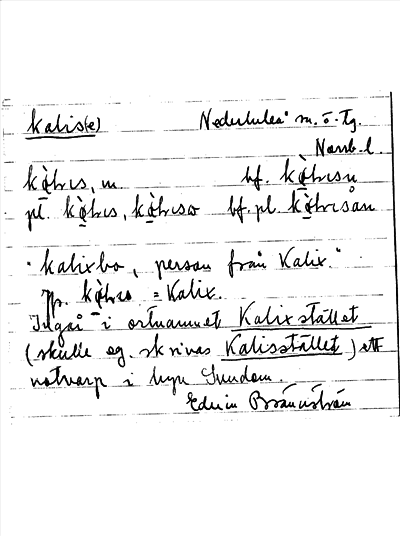 kalis(e) Nederluleå m. o. tg.
Norrb. l.
kàlıs, m. bf. kàlısn
pl. kàlıs, kàlıso bf. pl. kàlısån
"kalixbo, person från Kalix."
Jfr. = Kalix.
Ingår i ortnamnet Kalixstället
(skulle eg. skrivas Kalisstället) ett
notvarp i byn Sundom.
Edvin Brännström